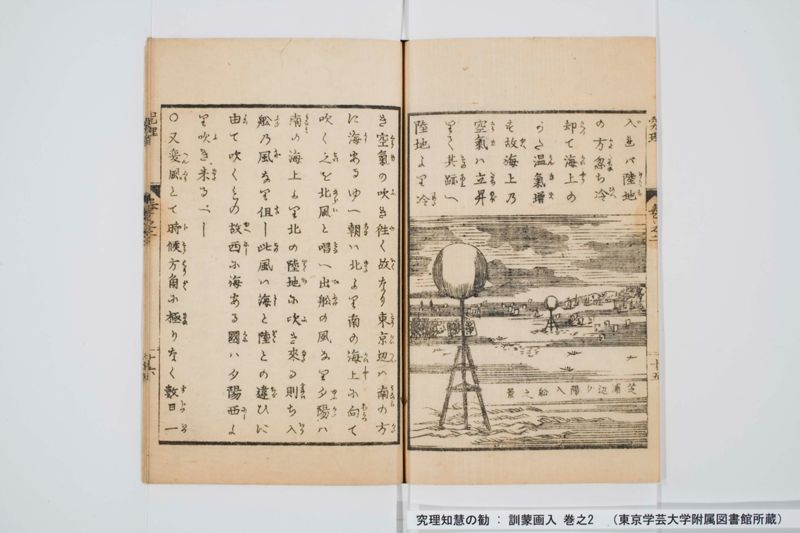 入れバ陸地
の方忽ち冷
却て海上の
かた温氣増
も故海上乃
空氣ハ立昇
里て其跡へ
陸地より冷
芝浦辺夕陽入舩之景
き空氣の吹き往く故なり東京辺ハ南の方
に海あるゆへ朝ハ北より南の海上に向て
吹く之を北風と唱へ出舩の風なり夕陽ハ
南の海上より北の陸地に吹き来る則ち入
舩乃風なり但し此風ハ海と陸との違ひに
由て吹くもの故西に海ある國ハ夕陽西よ
り吹き来るべし
〇又変風とて時候方角に極りなく數日一
究理知慧の勧 : 訓蒙画入 巻之2 （東京学芸大学附属図書館所蔵）